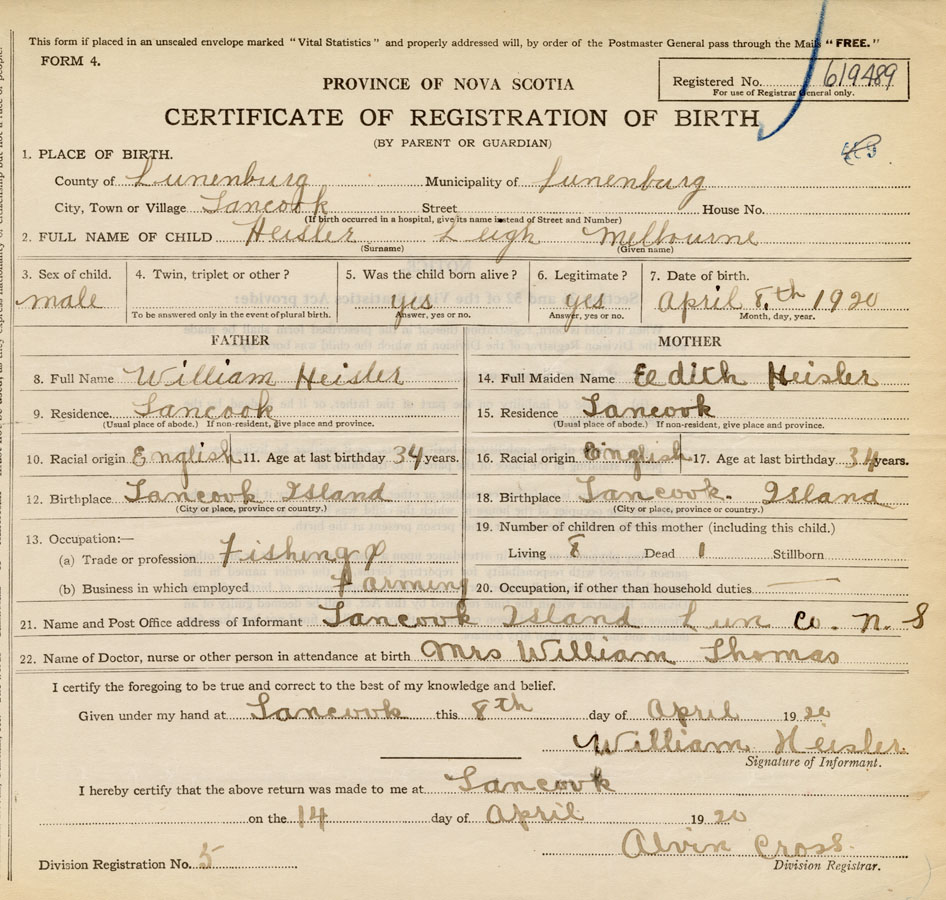 This form if placed in an unsealed envelope marked "Vital Statistics" and properly addressed will, by order of the Postmaster General pass through the Mails "FREE."
FORM 4.
Registered No. 619489
For use of Registrar General only.
PROVINCE OF NOVA SCOTIA
CERTIFICATE OF REGISTRATION OF BIRTH
(BY PARENT OR GUARDIAN)
1. PLACE OF BIRTH.
County of Lunenburg Municipality of Lunenburg
City, Town or Village Tancook Street House No.
(If birth occurred in a hospital, give its name instead of Street and Number)
2. FULL NAME OF CHILD Heisler Leigh Melbourne
(Surname) (Given name)
3. Sex of child. 4. Twin, triplet or other? 5. Was the child born alive? 6. Legitimate? 7. Date of birth.
male yes yes April 8th 1920
To be answered only in the event of plural birth. Answer, yes or no. Answer, yes or no. Month, day, year.
FATHER MOTHER
8. Full Name William Heisler 14. Full Maiden Name Eedith Heisler
9. Residence. Tancook 15. Residence Tancook
(Usual place of abode.) If non-resident, give place and province. (Usual place of abode.) If non-resident, give place and province.
10. Racial origin English 11. Age at last birthday 34 years. 16. Racial origin English 17. Age at last birthday 34 years.
12. Birthplace Tancook Island 18. Birthplace Tancook. Island
(City or place, province or country.) (City or place, province or country.)
13. Occupation:— 19. Number of children of this mother (including this child.)
(a) Trade or profession Fishing & Living 8 Dead 1 Stillborn
(b) Business in which employed Farming 20. Occupation, if other than household duties
21. Name and Post Office address of Informant Tancook Island Lun Co. N. S
22. Name of Doctor, nurse or other person in attendance at birth Mrs William Thomas
I certify the foregoing to be true and correct to the best of my knowledge and belief.
Given under my hand at Tancook this 8th day of April 1920
William Heisler
Signature of Informant.
I hereby certify that the above return was made to me at Tancook
on the 14 day of April 1920
Alvin Cross.
Division Registration No. 5
Division Registrar.